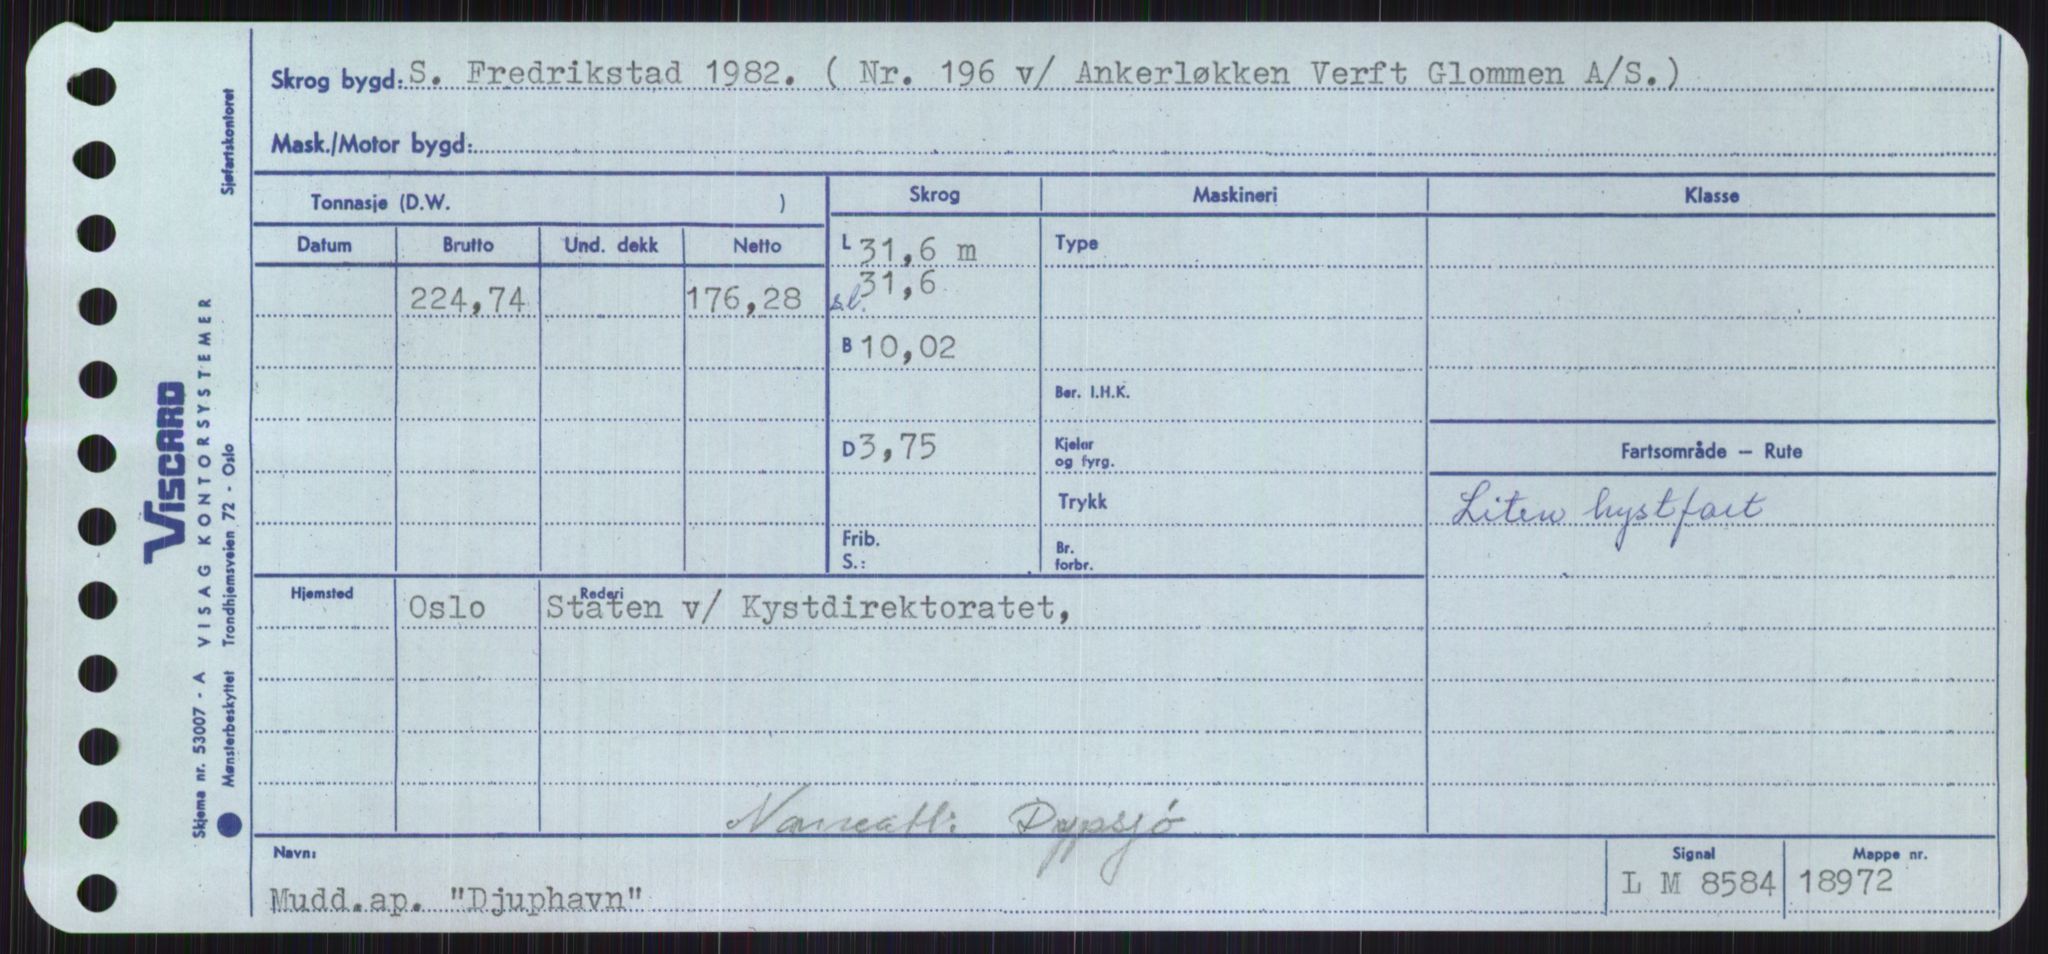 Skrog bygd: S. Fredrikstad 1982. ( Nr. 196 v/ Ankerløkken Verft Glommen A/S.)
Mask./Motor bygd:
Tonnasje (D.W. )
Skrog Maskineri Klasse
Datum Brutto Und. dekk Netto
L 31,6 m
Type
224,74 176,28
sl. 31,6
B 10,02
Ber. I.H.K.
D 3,75
Kjeler
og fyrg.
Fartsområde – Rute
Trykk
Liten kystfart
Frib.
S.:
Br.
forbr.
Hjemsted Rederi
Oslo Staten v/ Kystdirektoratet,
Dypsjø
Navn:
Mudd.ap. "Djuphavn"
Signal
L M 8584
Mappe nr.
18972
Sjøfartskontoret
VISCARD
VISAG KONTORSYSTEMER
Skjema nr. 53007 - A
Mønsterbeskyttet Trondhjemsveien 72 - Oslo